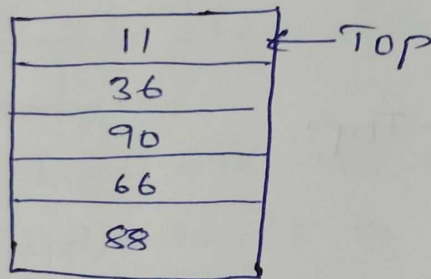 11 Top
36
90
66
88